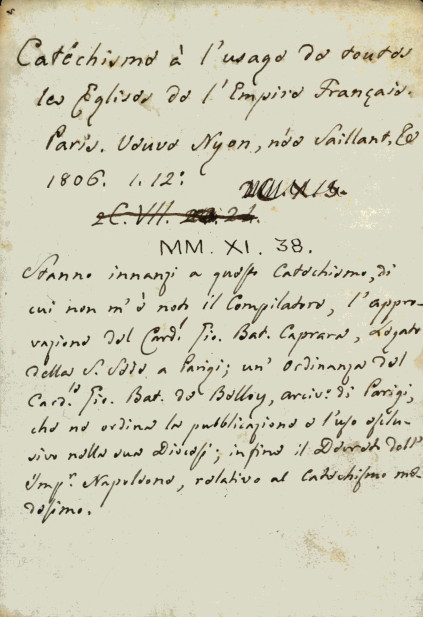 Catéchisme à l'usage de toutes
les Eglises de l'Empire Français.
Paris. Veuve Nyon, née Saillant, &c
1806. 1. 12:
2C. VII.
MM. XI. 38.
Stanno innanzi a questo Catechismo, di
cui non m'è noto il Compilatore, l'appro-
vazione del Card.l Gio. Bat. Caprara, Legato
della S. Sede a Parigi; un' Ordinanza del
Card.le Gio. Bat. de Belloy, arciv.o di Parigi,
che ne ordina la pubblicazione e l'uso esclu-
sivo nella sua Diocesi; infine il Decreto dell'
Imp.r Napoleone, relativo al Catechismo me-
desimo.